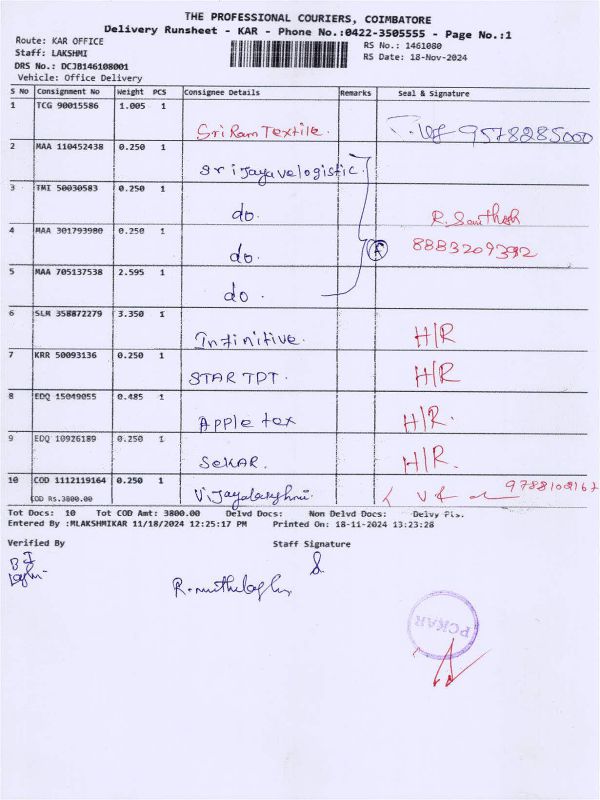 THE PROFESSIONAL COURIERS, COIMBATORE
Delivery Runsheet - KAR - Phone No.:0422-3505555 - Page No.:1
Route: KAR OFFICE
RS No.: 1461080
Staff: LAKSHMI
RS Date: 18-Nov-2024
DRS No.: DCJB146108001
Vehicle: Office Delivery
S No Consignment No Weight PCS Consignee Details Remarks Seal & Signature
1 TCG 90015586 1.005 1 Sri Ram Textile. 9578285000
2 MAA 110452438 0.250 1 Sri Jayavelogistic.
3 TMI 50030583 0.250 1 do. R. Santhosh
4 MAA 301793980 0.250 1 do. 8883209392
5 MAA 705137538 2.595 1 do.
6 SLM 358872279 3.350 1 Infinitive. H/R
7 KRR 50093136 0.250 1 STAR TPT. H/R
8 EDQ 15049055 0.485 1 Apple tex H/R.
9 EDQ 10926189 0.250 1 SEKAR. H/R.
10 COD 1112119164 0.250 1 Vijayalakshmi.
COD Rs.3800.00
Tot Docs: 10 Tot COD Amt: 3800.00 Delvd Docs: Non Delvd Docs: Delvy Pls.
Entered By :MLAKSHMIKAR 11/18/2024 12:25:17 PM Printed On: 18-11-2024 13:23:28
Verified By
Staff Signature
PCKAR